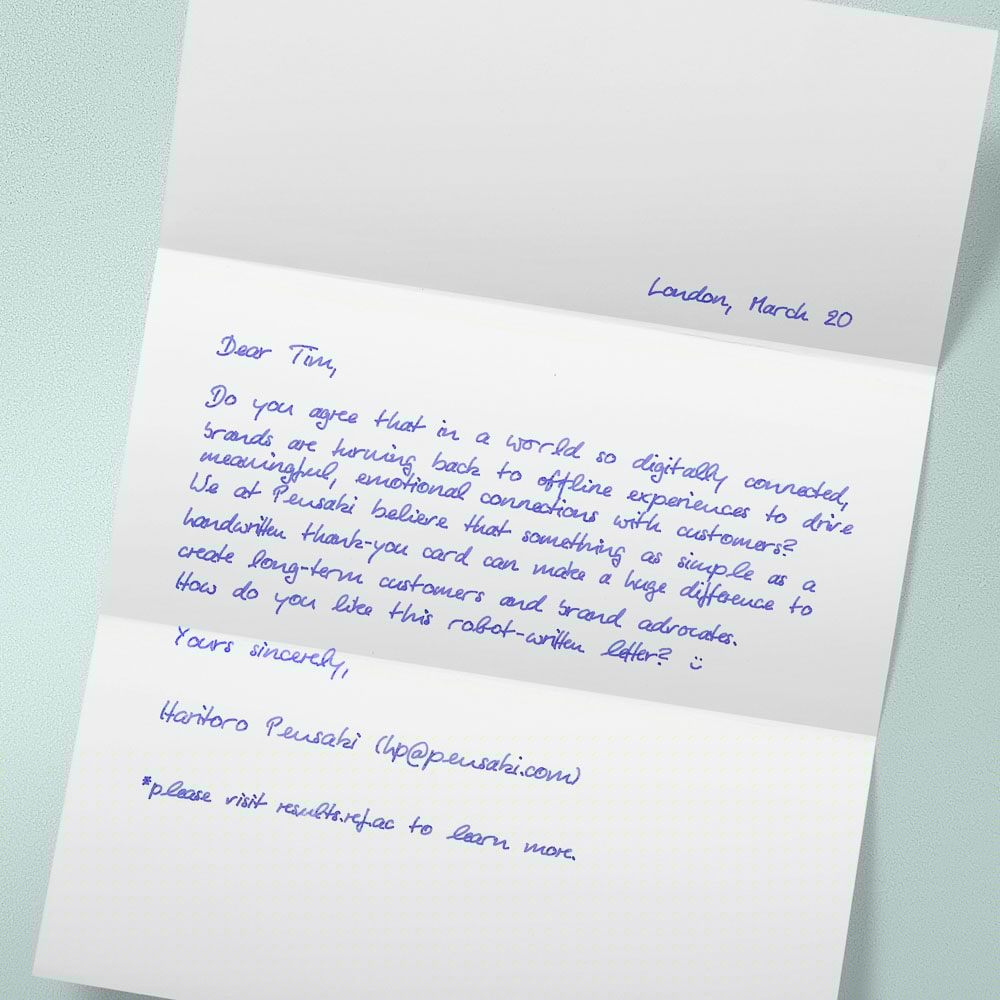 London, March 20
Dear Tim,
Do you agree that in a world so digitally connected,
brands are turning back to offline experiences to drive
meaningful, emotional connections with customers?
We at Pensaki believe that something as simple as a
handwritten thank-you card can make a huge difference to
create long-term customers and brand advocates.
How do you like this robot-written letter? :)
Yours sincerely,
Haritoro Pensaki (hp@pensaki.com)
*please visit results.ref.ac to learn more.